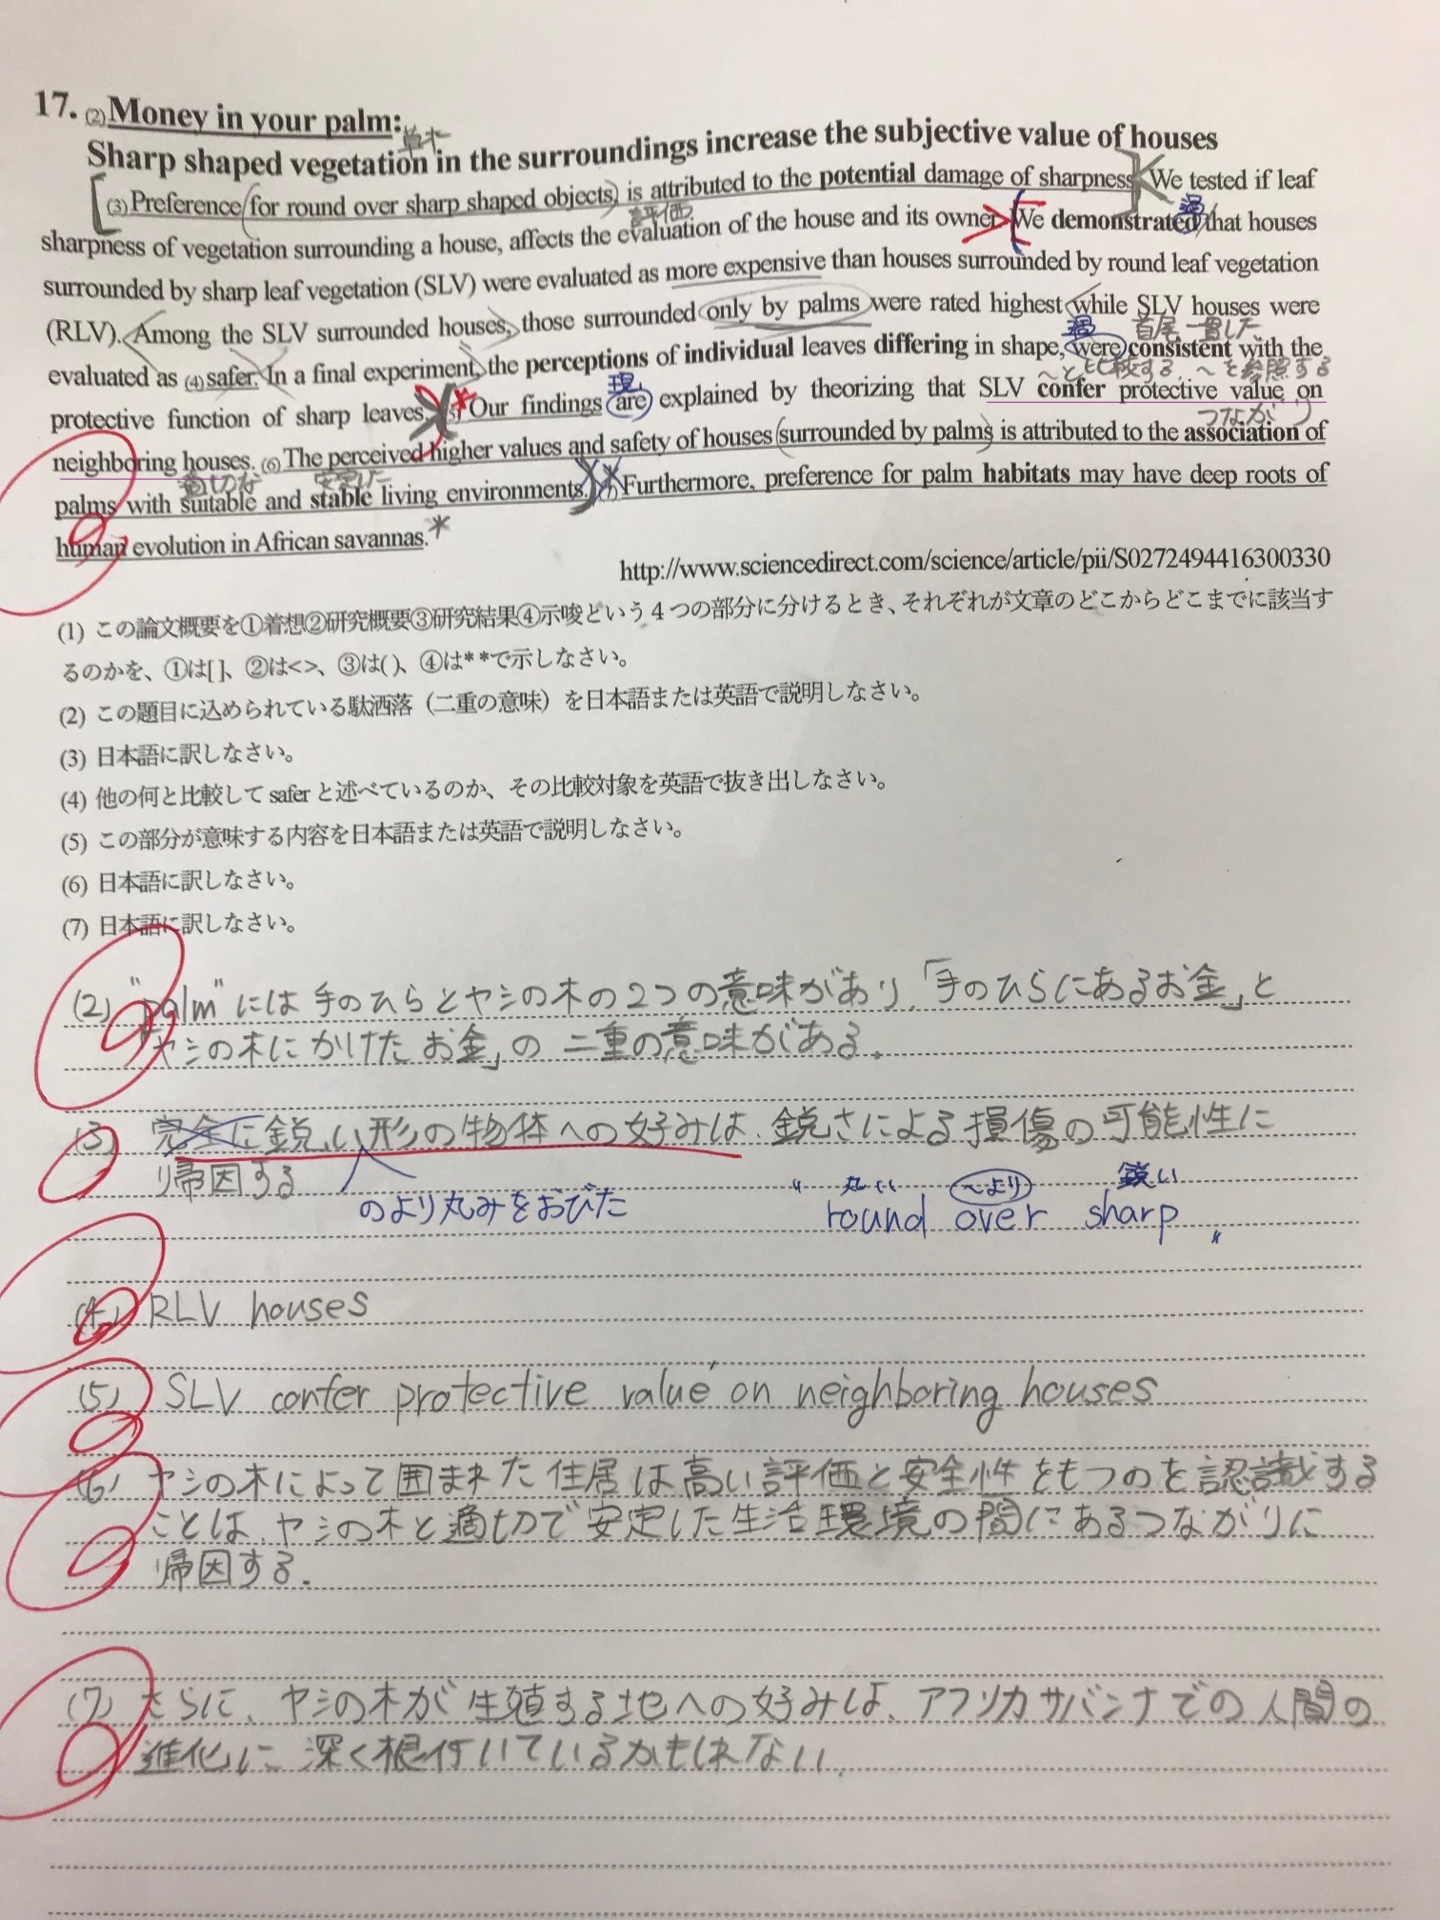 17. (2)Money in your palm:
草木
Sharp shaped vegetation in the surroundings increase the subjective value of houses
(3) Preference (for round over sharp shaped objects) is attributed to the potential damage of sharpness. We tested if leaf
評価 過
sharpness of vegetation surrounding a house, affects the evaluation of the house and its owner. We demonstrated that houses
surrounded by sharp leaf vegetation (SLV) were evaluated as more expensive than houses surrounded by round leaf vegetation
(RLV). Among the SLV surrounded houses, those surrounded only by palms were rated highest while SLV houses were
過 首尾一貫した
evaluated as (4) safer. In a final experiment, the perceptions of individual leaves differing in shape, were consistent with the
現 〜と比較する、〜を参照する
protective function of sharp leaves. (5) Our findings are explained by theorizing that SLV confer protective value on
つながり
neighboring houses. (6) The perceived higher values and safety of houses (surrounded by palms) is attributed to the association of
適切な 安定した
palms with suitable and stable living environments. (7) Furthermore, preference for palm habitats may have deep roots of
human evolution in African savannas.*
http://www.sciencedirect.com/science/article/pii/S0272494416300330
(1) この論文概要を①着想②研究概要③研究結果④示唆という４つの部分に分けるとき、それぞれが文章のどこからどこまでに該当す
るのかを、①は[ ]、②は< >、③は( )、④は* *で示しなさい。
(2) この題目に込められている駄洒落（二重の意味）を日本語または英語で説明しなさい。
(3) 日本語に訳しなさい。
(4) 他の何と比較して safer と述べているのか、その比較対象を英語で抜き出しなさい。
(5) この部分が意味する内容を日本語または英語で説明しなさい。
(6) 日本語に訳しなさい。
(7) 日本語に訳しなさい。
(2) "palm"には手のひらとヤシの木の2つの意味があり、「手のひらにあるお金」と
「ヤシの木にかけたお金」の二重の意味がある。
(3) 完全に鋭い形の物体への好みは、鋭さによる損傷の可能性に
帰因する
のより丸みをおびた
丸い 〜より 鋭い
"round over sharp"
(4) RLV houses
(5) SLV confer protective value on neighboring houses
(6) ヤシの木によって囲まれた住居は高い評価と安全性をもつのを認識する
ことは、ヤシの木と適切で安定した生活環境の間にあるつながりに
帰因する.
(7) さらに、ヤシの木が生殖する地への好みは、アフリカサバンナでの人間の
進化に深く根付いているかもしれない.